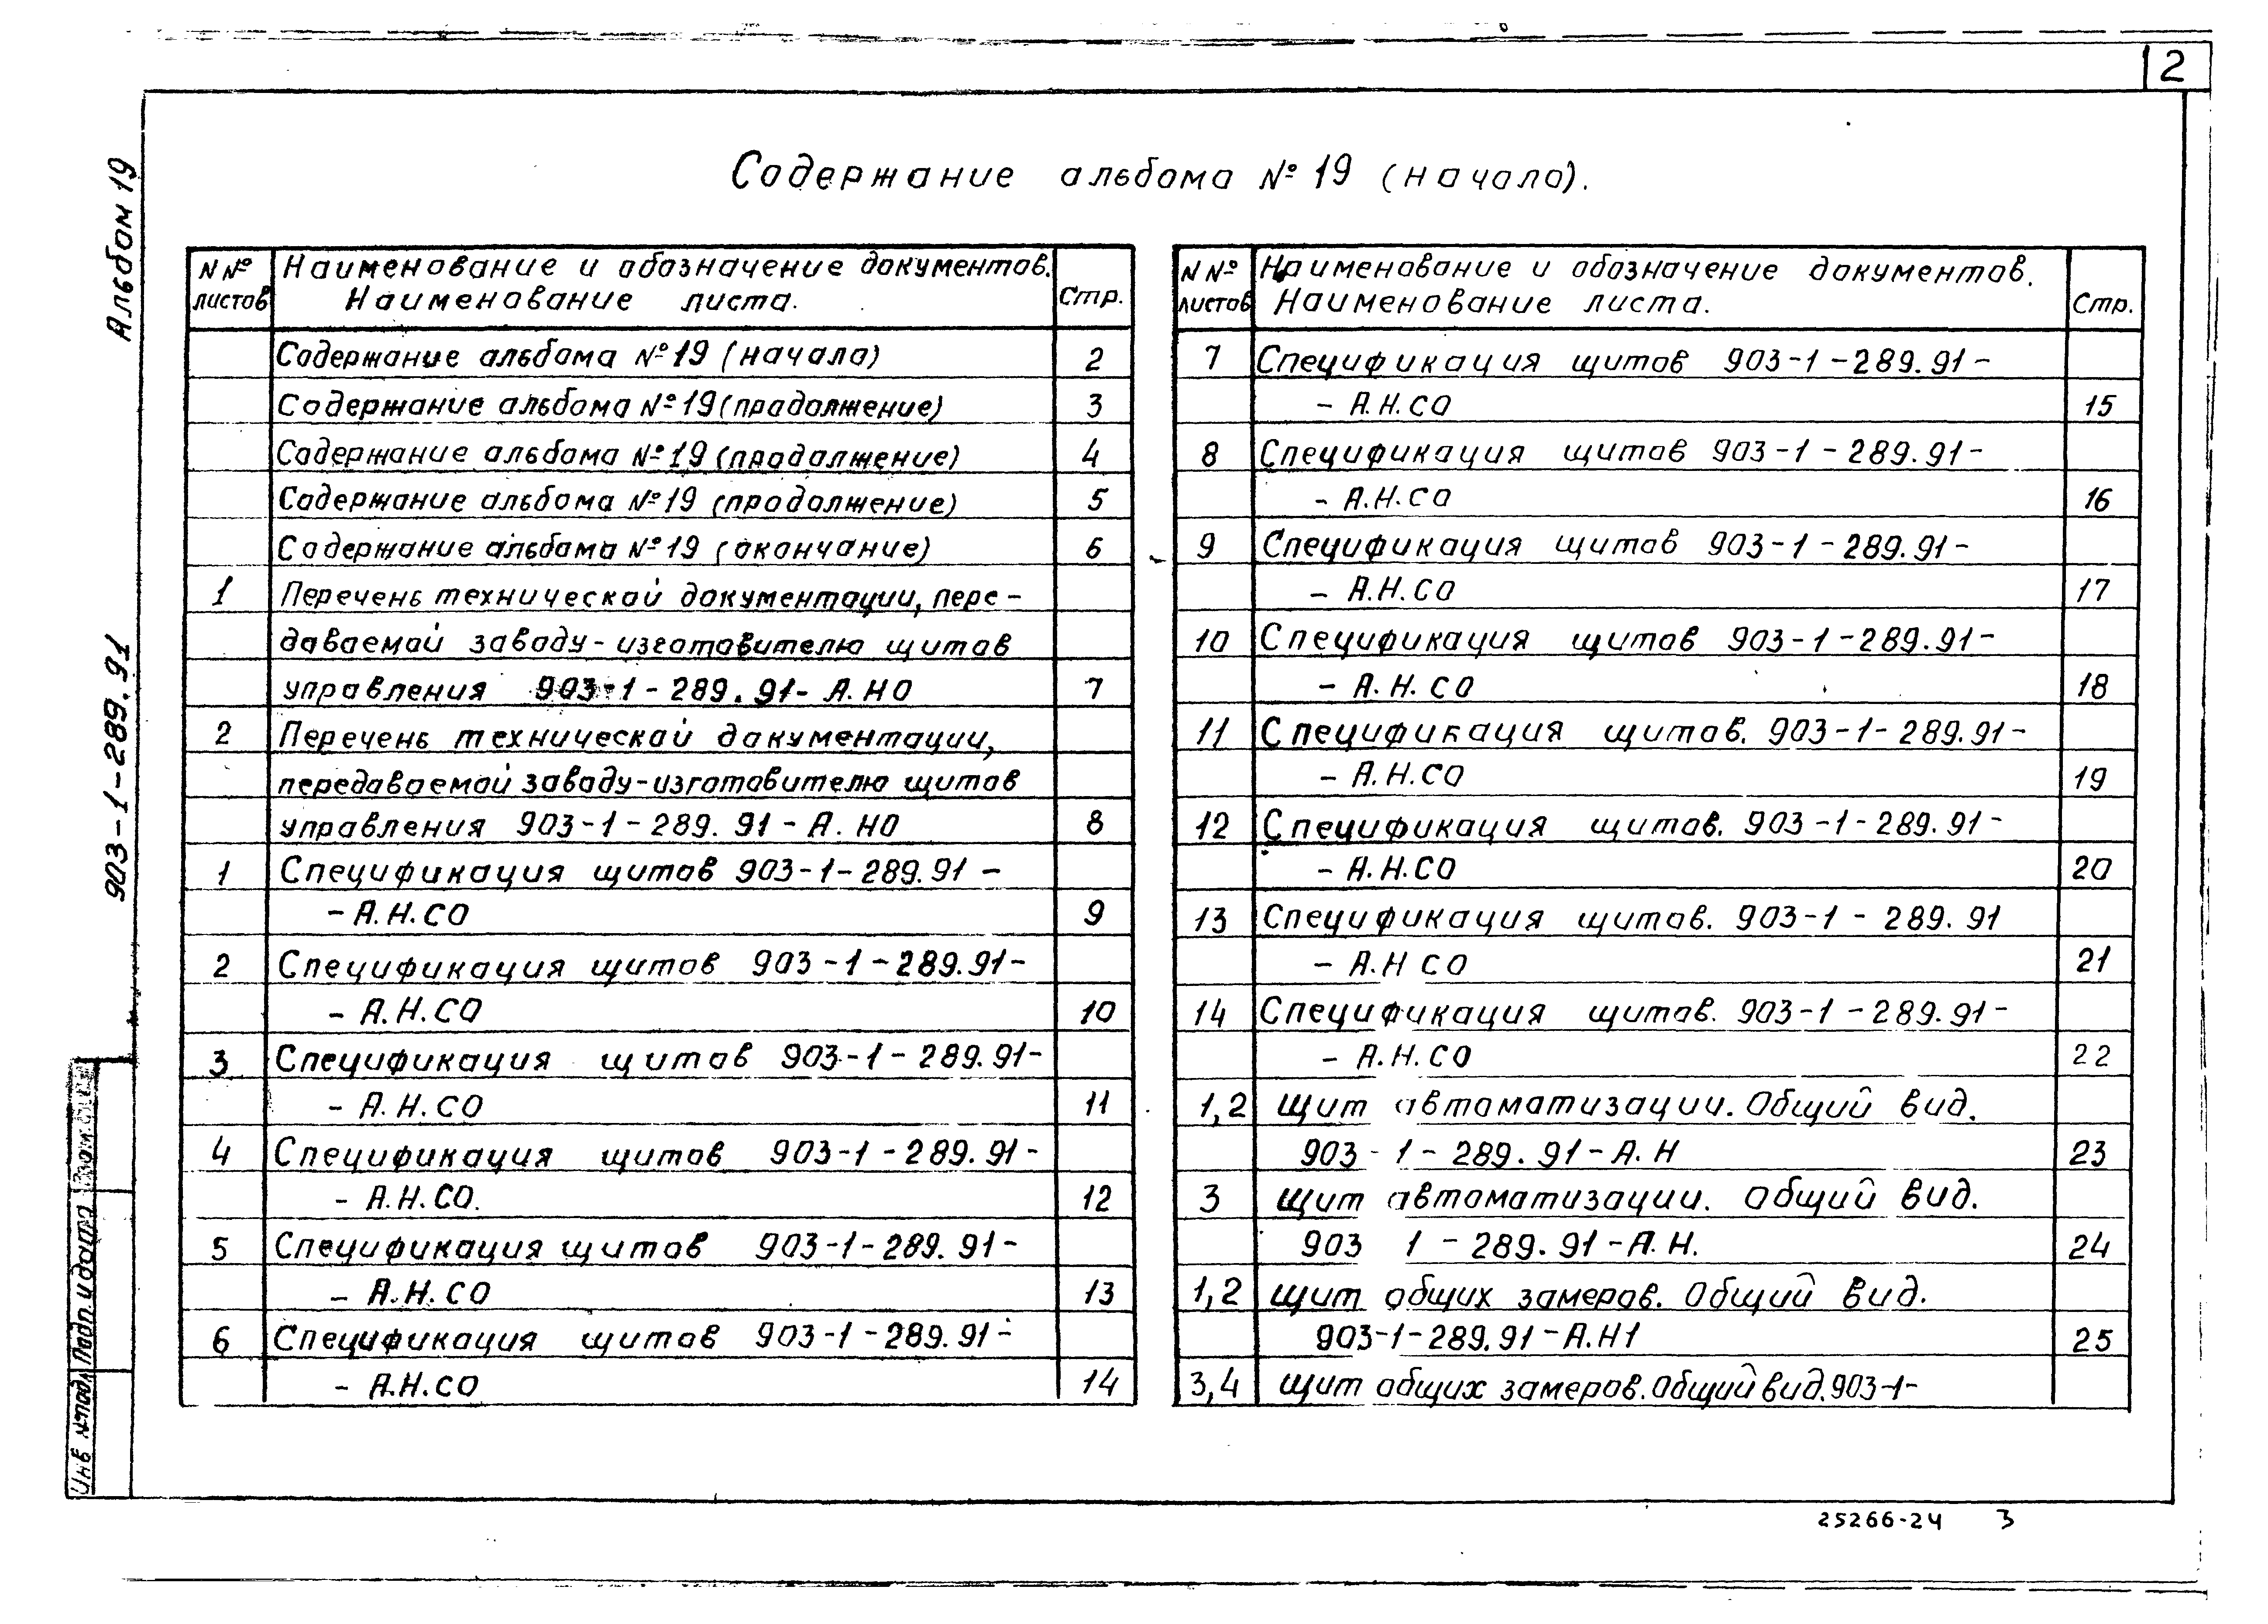 2
Содержание альбома № 19 (начало).
Альбом 19
903-1-289.91
N №
листов
Наименование и обозначение документов.
Наименование листа.
Стр.
Содержание альбома № 19 (начало) 2
Содержание альбома № 19 (продолжение) 3
Содержание альбома № 19 (продолжение) 4
Содержание альбома № 19 (продолжение) 5
Содержание альбома № 19 (окончание) 6
1 Перечень технической документации, пере-
даваемой заводу-изготовителю щитов
управления 903-1-289.91-А.НО 7
2 Перечень технической документации,
передаваемой заводу-изготовителю щитов
управления 903-1-289.91-А.НО 8
1 Спецификация щитов 903-1-289.91-
-А.Н.СО 9
2 Спецификация щитов 903-1-289.91-
-А.Н.СО 10
3 Спецификация щитов 903-1-289.91-
-А.Н.СО 11
4 Спецификация щитов 903-1-289.91-
-А.Н.СО. 12
5 Спецификация щитов 903-1-289.91-
-А.Н.СО 13
6 Спецификация щитов 903-1-289.91-
-А.Н.СО 14
N №
листов
Наименование и обозначение документов.
Наименование листа.
Стр.
7 Спецификация щитов 903-1-289.91-
-А.Н.СО 15
8 Спецификация щитов 903-1-289.91-
-А.Н.СО 16
9 Спецификация щитов 903-1-289.91-
-А.Н.СО 17
10 Спецификация щитов 903-1-289.91-
-А.Н.СО 18
11 Спецификация щитов. 903-1-289.91-
-А.Н.СО 19
12 Спецификация щитов. 903-1-289.91-
-А.Н.СО 20
13 Спецификация щитов. 903-1-289.91
-А.Н СО 21
14 Спецификация щитов. 903-1-289.91-
-А.Н.СО 22
1,2 Щит автоматизации. Общий вид.
903-1-289.91-А.Н 23
3 Щит автоматизации. Общий вид.
903 1-289.91-А.Н. 24
1,2 Щит общих замеров. Общий вид.
903-1-289.91-А.Н1 25
3,4 Щит общих замеров. Общий вид. 903-1-
Инв №подл
Подп. и дата
Взам.
25266-24 3